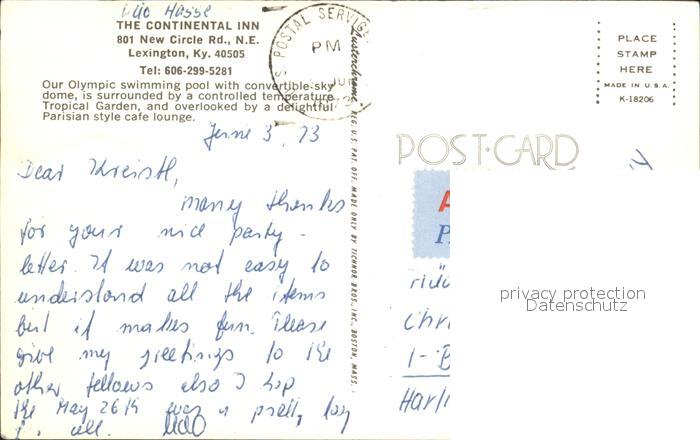 Udo Hasse
THE CONTINENTAL INN
801 New Circle Rd., N.E.
Lexington, Ky. 40505
Tel: 606-299-5281
Our Olympic swimming pool with convertible sky
dome, is surrounded by a controlled temperature
Tropical Garden, and overlooked by a delightful
Parisian style cafe lounge.
S. POSTAL SERVICE
PM
JUN
PLACE
STAMP
HERE
MADE IN U.S.A.
K-18206
Lusterchrome REG. U.S. PAT. OFF. MADE ONLY BY TICHNOR BROS., INC., BOSTON, MASS.
POST-CARD
June 3, 73
Dear
many thanks
for your nice party -
letter. It was not easy to
understand all the items
but it makes fun. Please
give my greetings to the
other fellows also I hop
the May 26th was a pretty day
all. Udo
A
P
Chri
1-B
Harl
privacy protection
Datenschutz